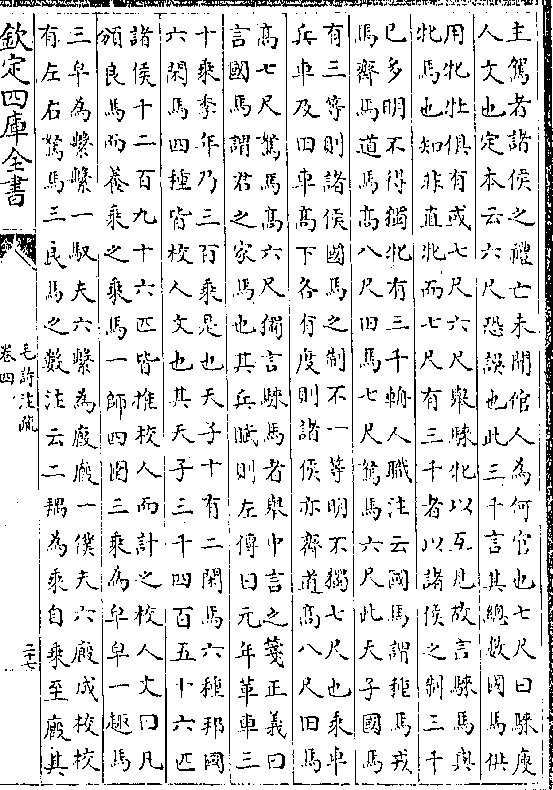 主駕者諸侯之禮亡未聞倌人為何官也七尺曰騋廋
人文也定本云六尺恐誤也此三千言其總數國馬供
用牝牡俱有或七尺六尺舉騋牝以互見故言騋馬與
牝馬也知非直牝而七尺有三千者以諸侯之制三千
已多明不得獨牝有三千輈人職注云國馬謂種馬戎
馬齊馬道馬高八尺田馬七尺駑馬六尺此天子國馬
有三等則諸侯國馬之制不一等明不獨七尺也乘車
兵車及田車高下各有度則諸侯亦齊道高八尺田馬
高七尺駑馬高六尺獨言騋馬者舉中言之箋正義曰
言國馬謂君之家馬也其兵賦則左傳曰元年革車三
十乘季年乃三百乘是也天子十有二閑馬六種邦國
六閑馬四種皆校人文也其天子三千四百五十六匹
諸侯十二百九十六匹皆推校人而計之校人文曰凡
頒良馬而養乘之乘馬一師四圉三乘為皁皁一趣馬
三皁為繫繫一馭夫六繫為廄廄一僕夫六廄成校校
有左右駑馬三良馬之數注云二耦為乘自乘至廄其
欽定四庫全書
毛詩注疏
卷四